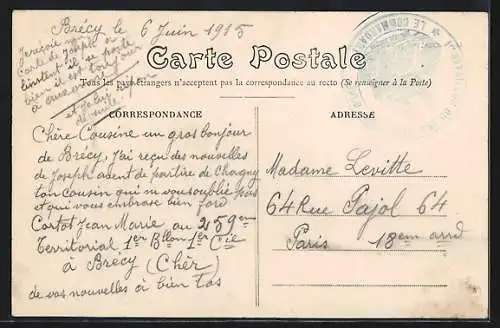 Brécy le 6 Juin 1915
Carte de Joseph
l'instant il se porte
bien il est toujour
Carte Postale
Tous les pays étrangers n'acceptent pas la correspondance au recto (Se renseigner à la Poste)
CORRESPONDANCE
ADRESSE
Chère Cousine un gros bonjour
de Brécy, j'ai reçu des nouvelles
de Joseph avent de partire de Chagny
ton Cousin qui ne vous oublié pas
et qui vous embrase bien ford
Cortot Jean Marie au 259em
Territorial 1er Bllon 1er Cie
à Brécy (Chèr)
de vos nouvelles à bien tos
Madame Levitte
64 Rue Pajol 64
Paris 18em arrd
LE COMMANDANT